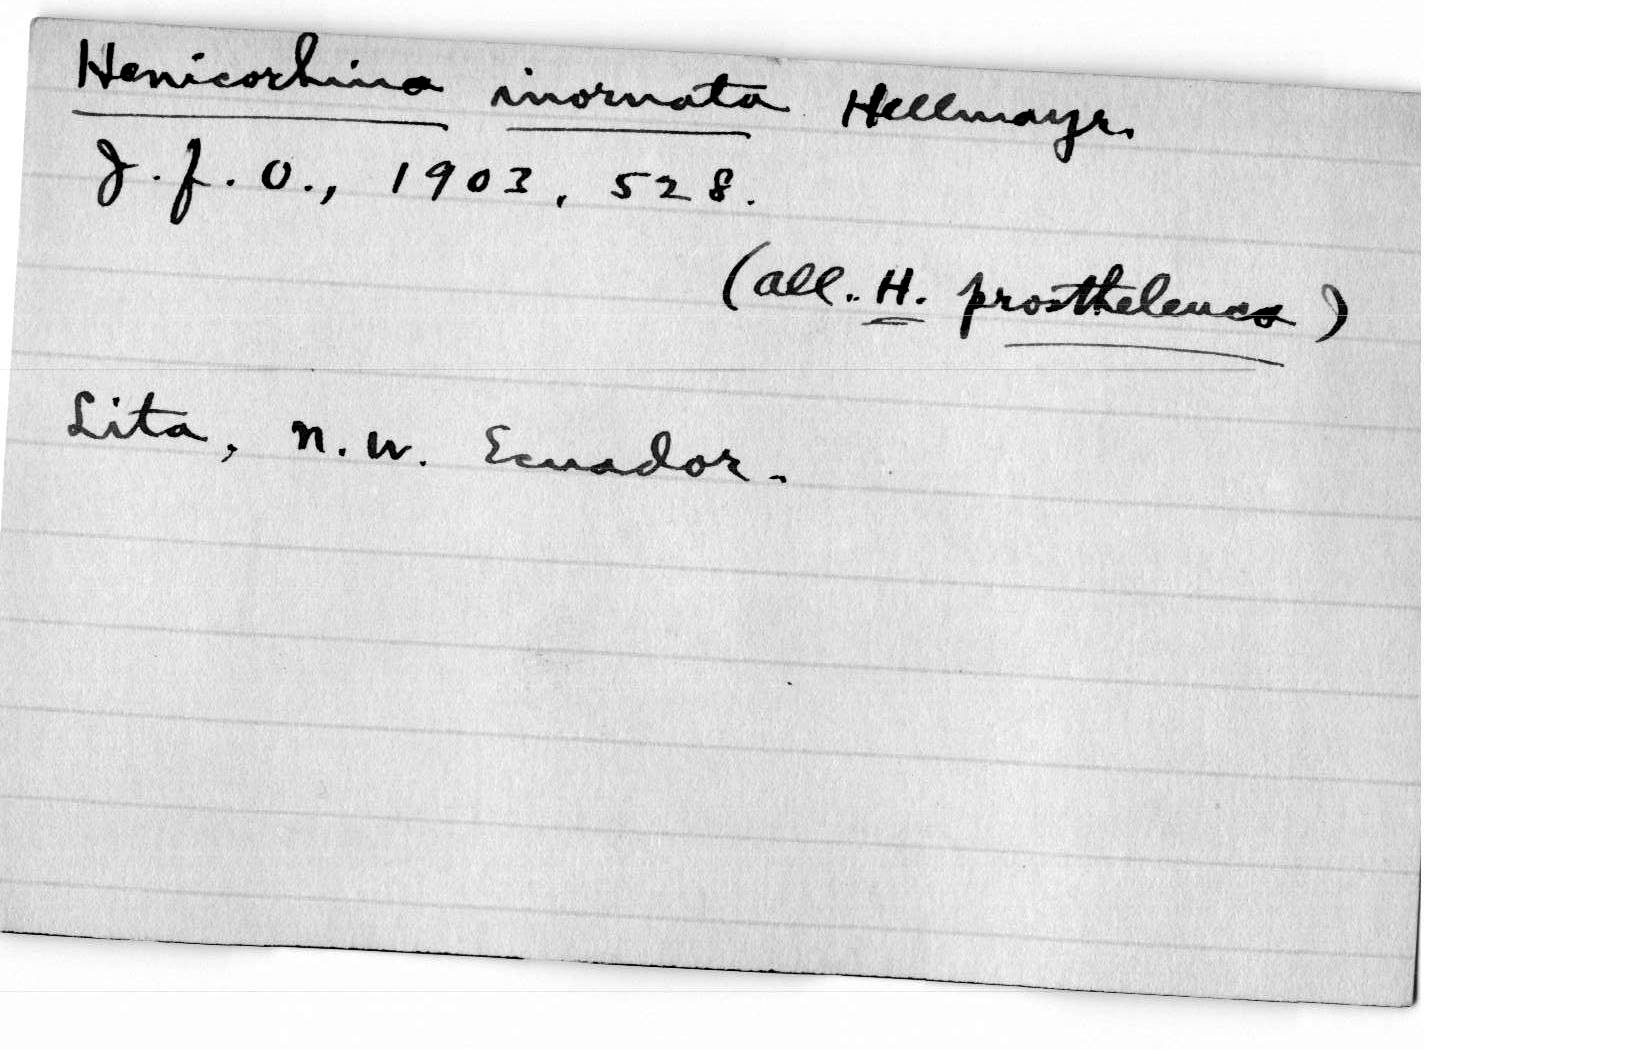 Henicorhina inornata Hellmayr.
J. f. O., 1903, 528.
(all. H. prostheleuca)
Lita, n.w. Ecuador.